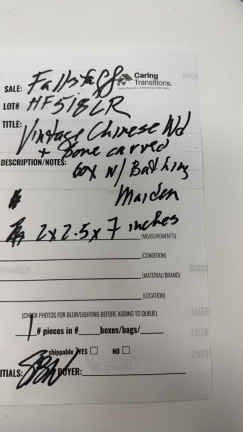 SALE: Falls
Caring Transitions.
LOT# HF518LR
TITLE: Vintage Chinese Wd
+ Bone carved
DESCRIPTION/NOTES: box w/ Bathing
Maiden
2x2.5x7 inches
(MEASUREMENTS)
(CONDITION)
(MATERIAL/BRAND)
(LOCATION)
(CHECK PHOTOS FOR BLUR/LIGHTING BEFORE ADDING TO QUEUE)
1 # pieces in # boxes/bags/
shippable YES NO
INITIALS: BUYER: